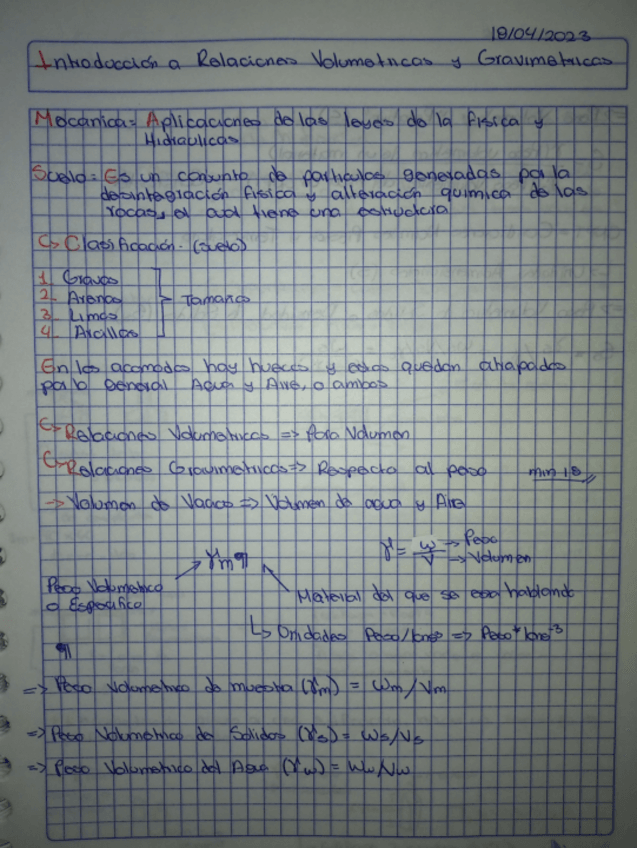 18/04/2023
Introducción a Relaciones Volumetricas y Gravimetricas
Mecánica = Aplicaciones de las leyes de la física y
Hidraulicas
Suelo = Es un conjunto de particulas generadas por la
desintegración física y alteración química de las
rocas, el cual tiene una estructura
↳ Clasificación. (suelo)
1. Gravas
2. Arenas
3. Limos
4. Arcillas
Tamaño
En los acomodos hay huecos y estos quedan atrapados
por lo general Agua y Aire, o ambos
↳ Relaciones Volumetricas => Para Volumen
↳ Relaciones Gravimetricas => Respecto al peso min 18
→ Volumen de Vacios => Volumen de agua y Aire
γm
γ = w/v → Peso
→ Volumen
Peso Volumetrico
o Especifico
Material del que se esta hablando
↳ Unidades Peso/long³ => Peso*long⁻³
=> Peso Volumetrico de muestra (γm) = Wm/Vm
=> Peso Volumetrico de Solidos (γs) = Ws/Vs
=> Peso Volumetrico del Agua (γw) = Ww/Vw